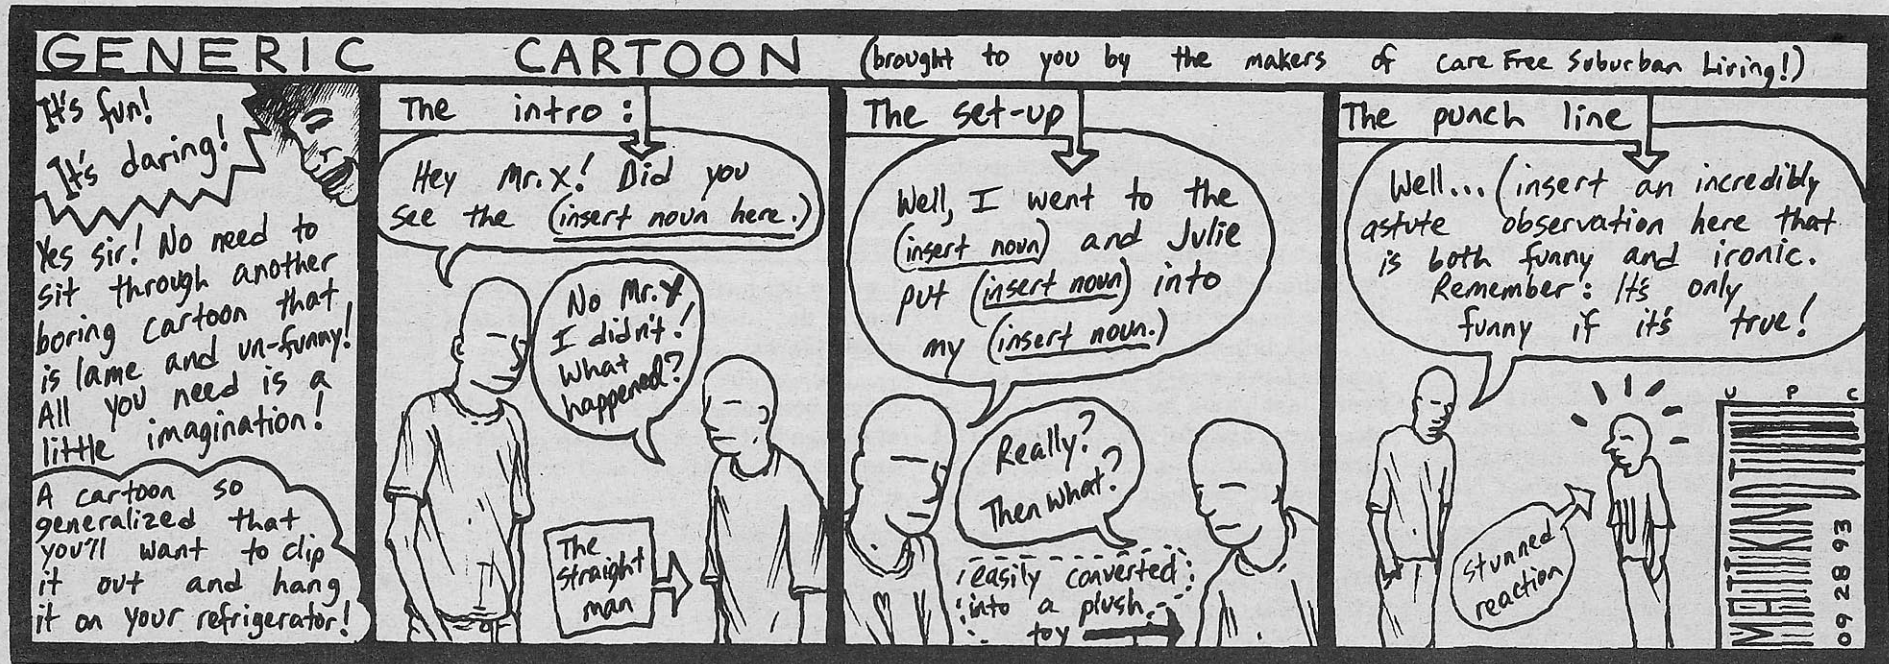 GENERIC CARTOON (brought to you by the makers of Care Free Suburban Living!)
It's fun!
It's daring!
Yes sir! No need to
sit through another
boring cartoon that
is lame and un-funny!
All you need is a
little imagination!
A cartoon so
generalized that
you'll want to clip
it out and hang
it on your refrigerator!
The intro:
Hey Mr. X! Did you
see the (insert noun here.)
No Mr. Y
I didn't!
What
happened?
The
straight
man
The set-up
Well, I went to the
(insert noun) and Julie
put (insert noun) into
my (insert noun.)
Really?
Then what?
easily converted
into a plush
toy
The punch line
Well... (insert an incredibly
astute observation here that
is both funny and ironic.
Remember: It's only
funny if it's true!
stunned
reaction
U P C
MATT KINDT
09 28 93